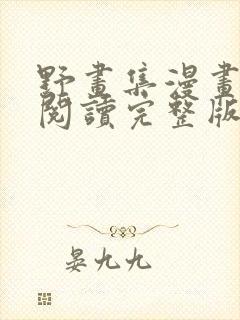 野畫集漫畫
閱讀完整版
晏九九